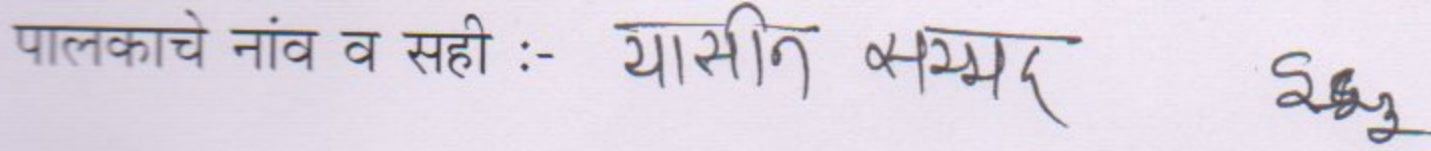 पालकाचे नांव व सही :- यासीन सय्यद